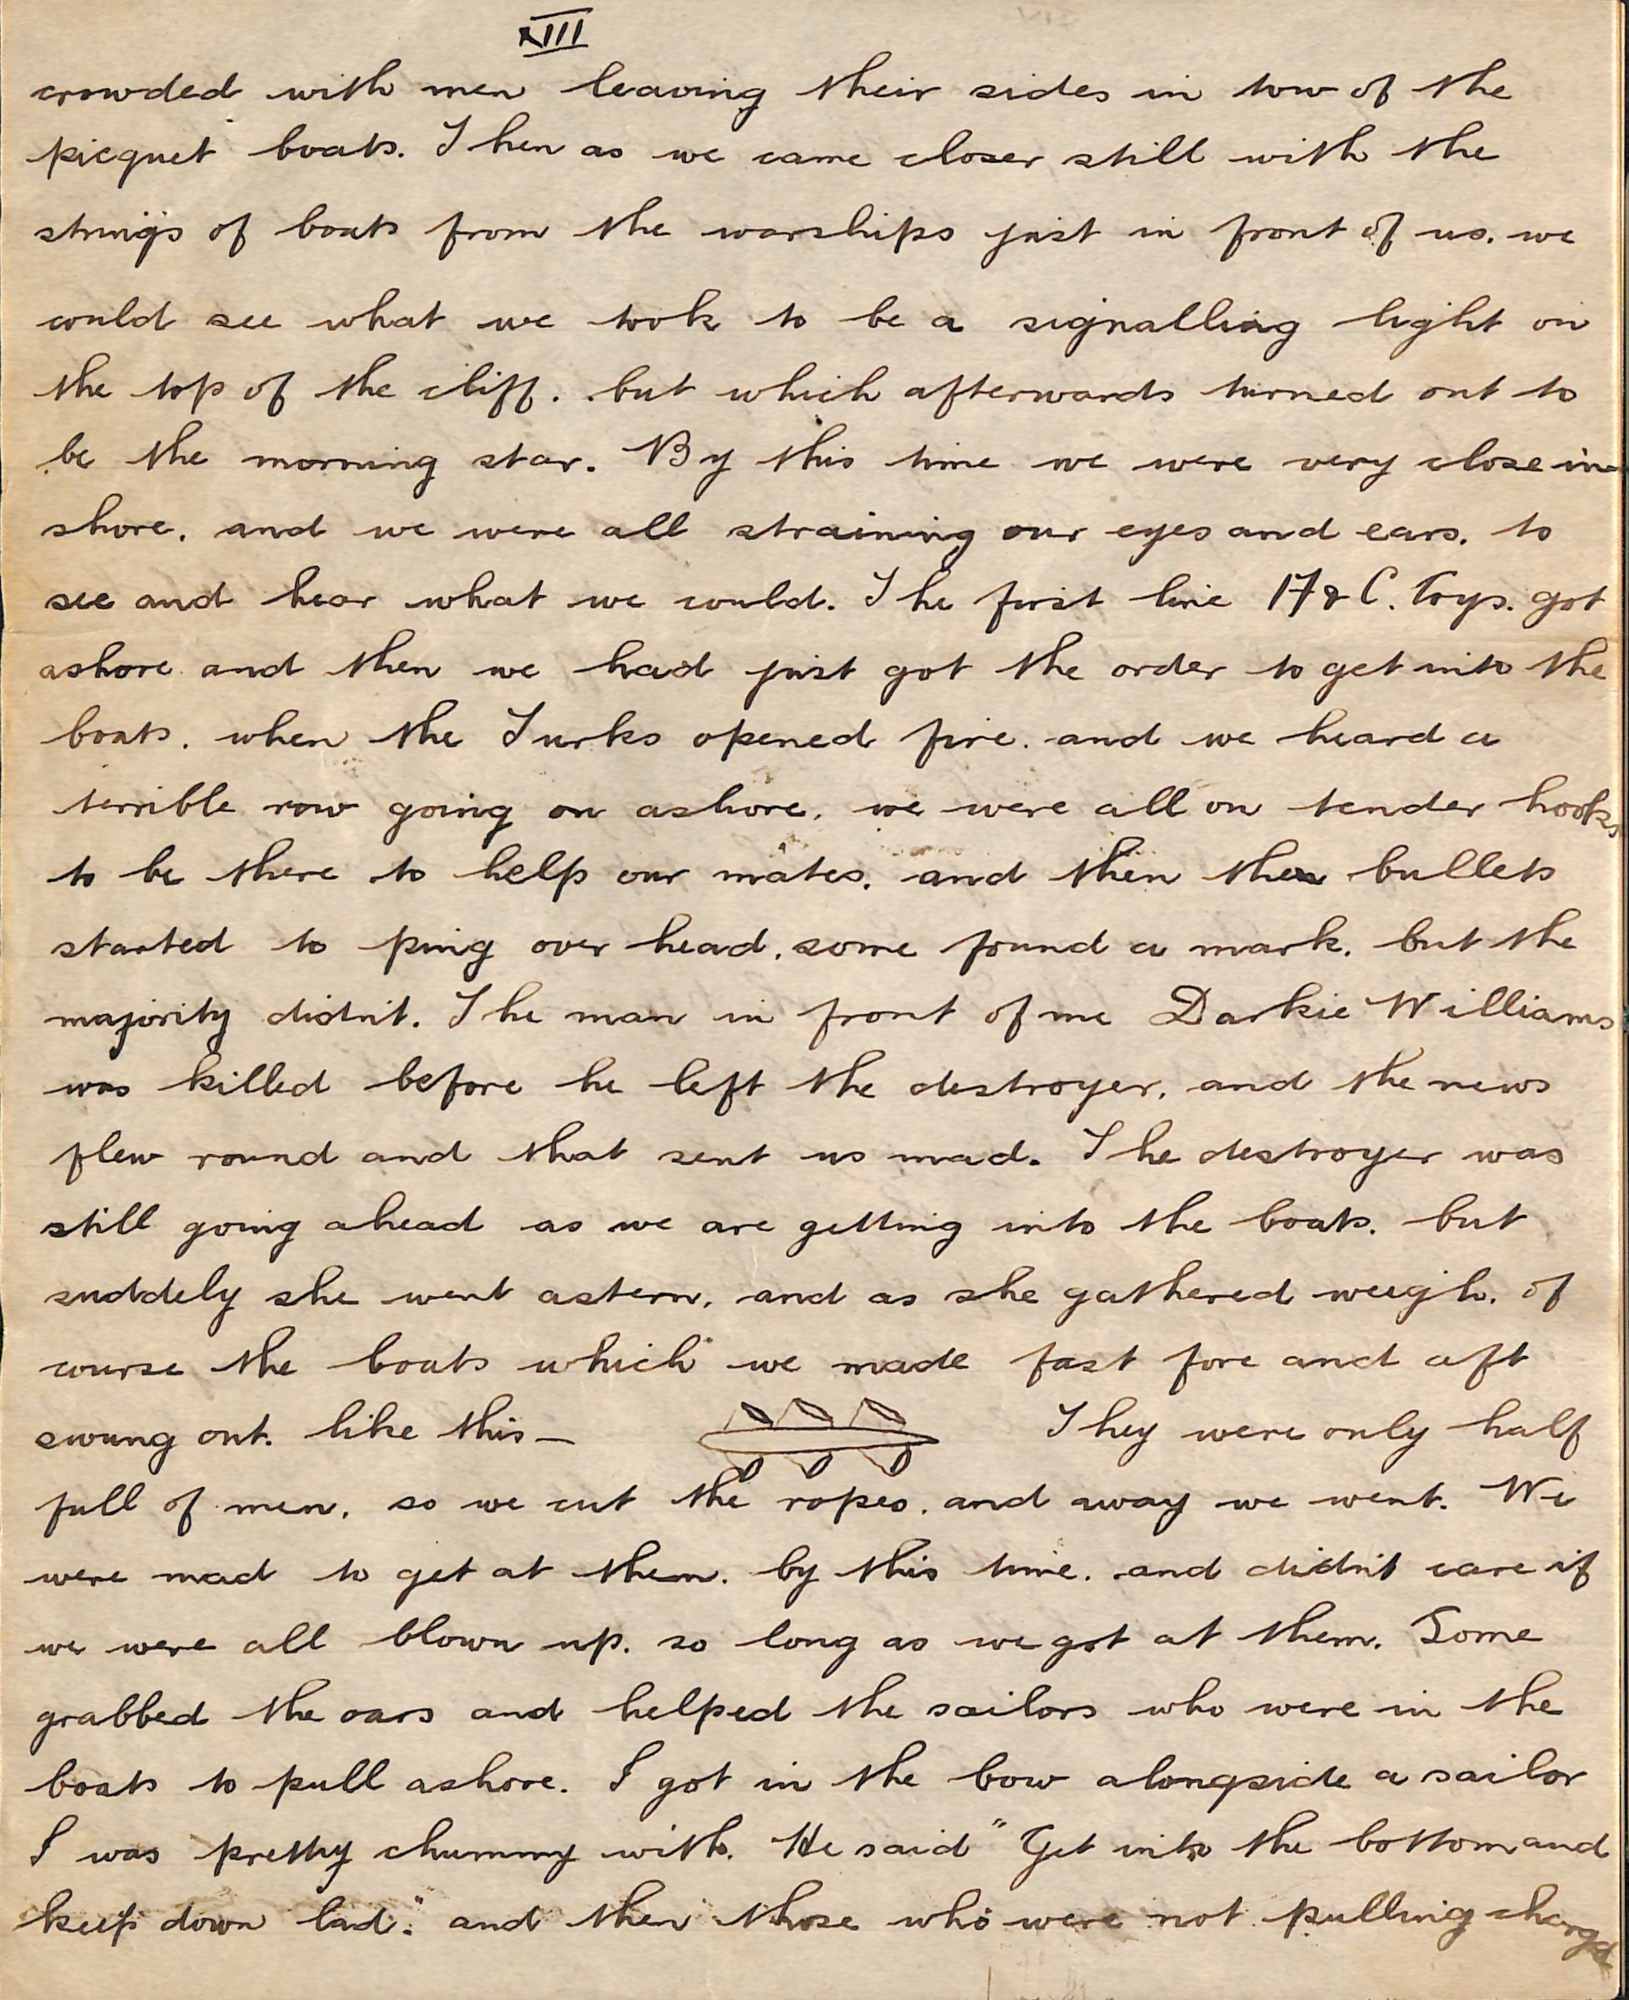 XIII
crowded with men leaving their sides in tow of the
picquet boats. Then as we came closer still with the
strings of boats from the warships just in front of us. we
could see what we took to be a signalling light on
the top of the cliff. but which afterwards turned out to
be the morning star. By this time we were very close in
shore. and we were all straining our eyes and ears. to
see and hear what we could. The first line & C. Coys. got
ashore and then we had just got the order to get into the
boats. when the Turks opened fire. and we heard a
terrible row going on ashore. we were all on tender hooks
to be there to help our mates. and then the bullets
started to ping over head. some found a mark. but the
majority didn't. The man in front of me Darkie Williams
was killed before he left the destroyer. and the news
flew round and that sent us mad. The destroyer was
still going ahead as we are getting into the boats. but
suddely she went astern. and as she gathered weigh. of
course the boats which we made fast fore and aft
swung out. like this— They were only half
full of men. so we cut the ropes. and away we went. We
were mad to get at them. by this time. and didn't care if
we were all blown up. so long as we got at them. Some
grabbed the oars and helped the sailors who were in the
boats to pull ashore. I got in the bow alongside a sailor
I was pretty chummy with. He said "Get into the bottom and
keep down lad." and then those who were not pulling